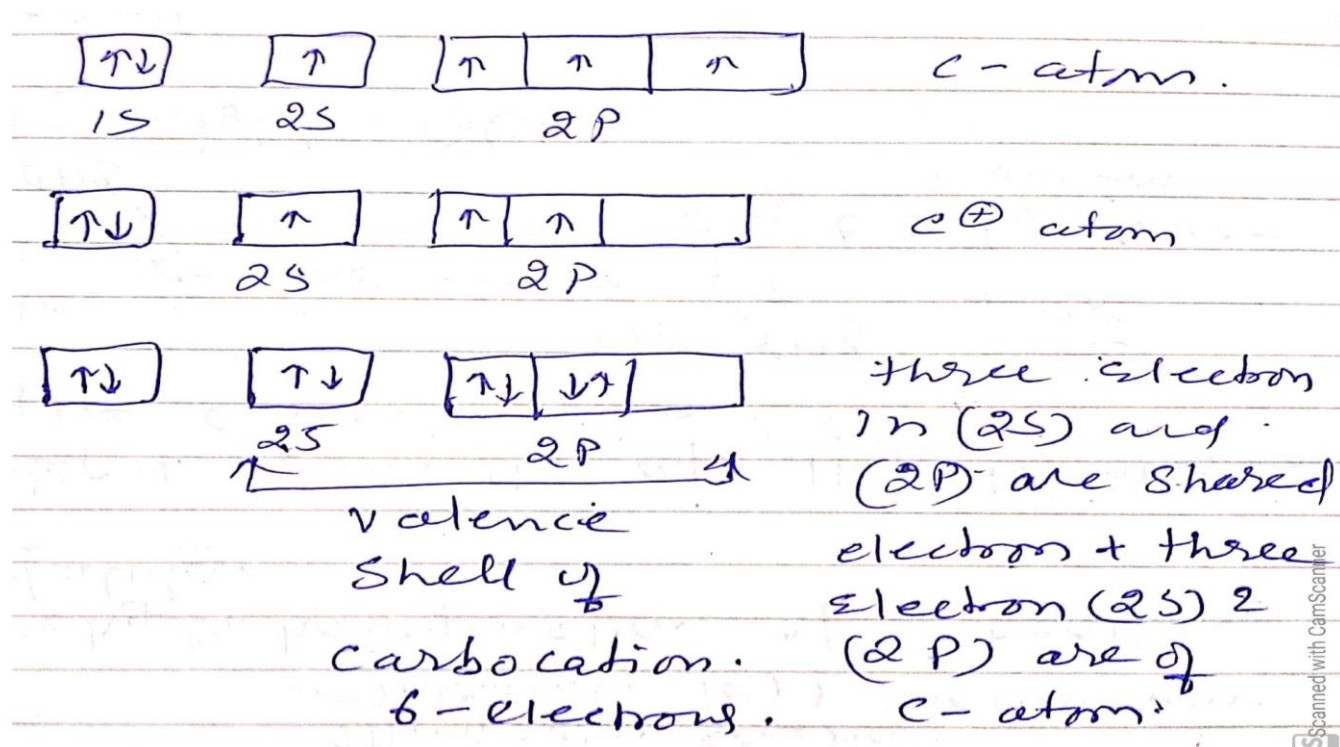 ↑↓ ↑ ↑ ↑ ↑ C - atom.
1S 2S 2P
↑↓ ↑ ↑ ↑ C⊕ atom
2S 2P
↑↓ ↑↓ ↑↓ ↓↑
2S 2P
valencie
Shell of
carbocation.
6-electrons.
three electron
In (2S) and
(2P) are Shared
electron + three
Electron (2S) 2
(2P) are of
C-atom.
Scanned with CamScanner